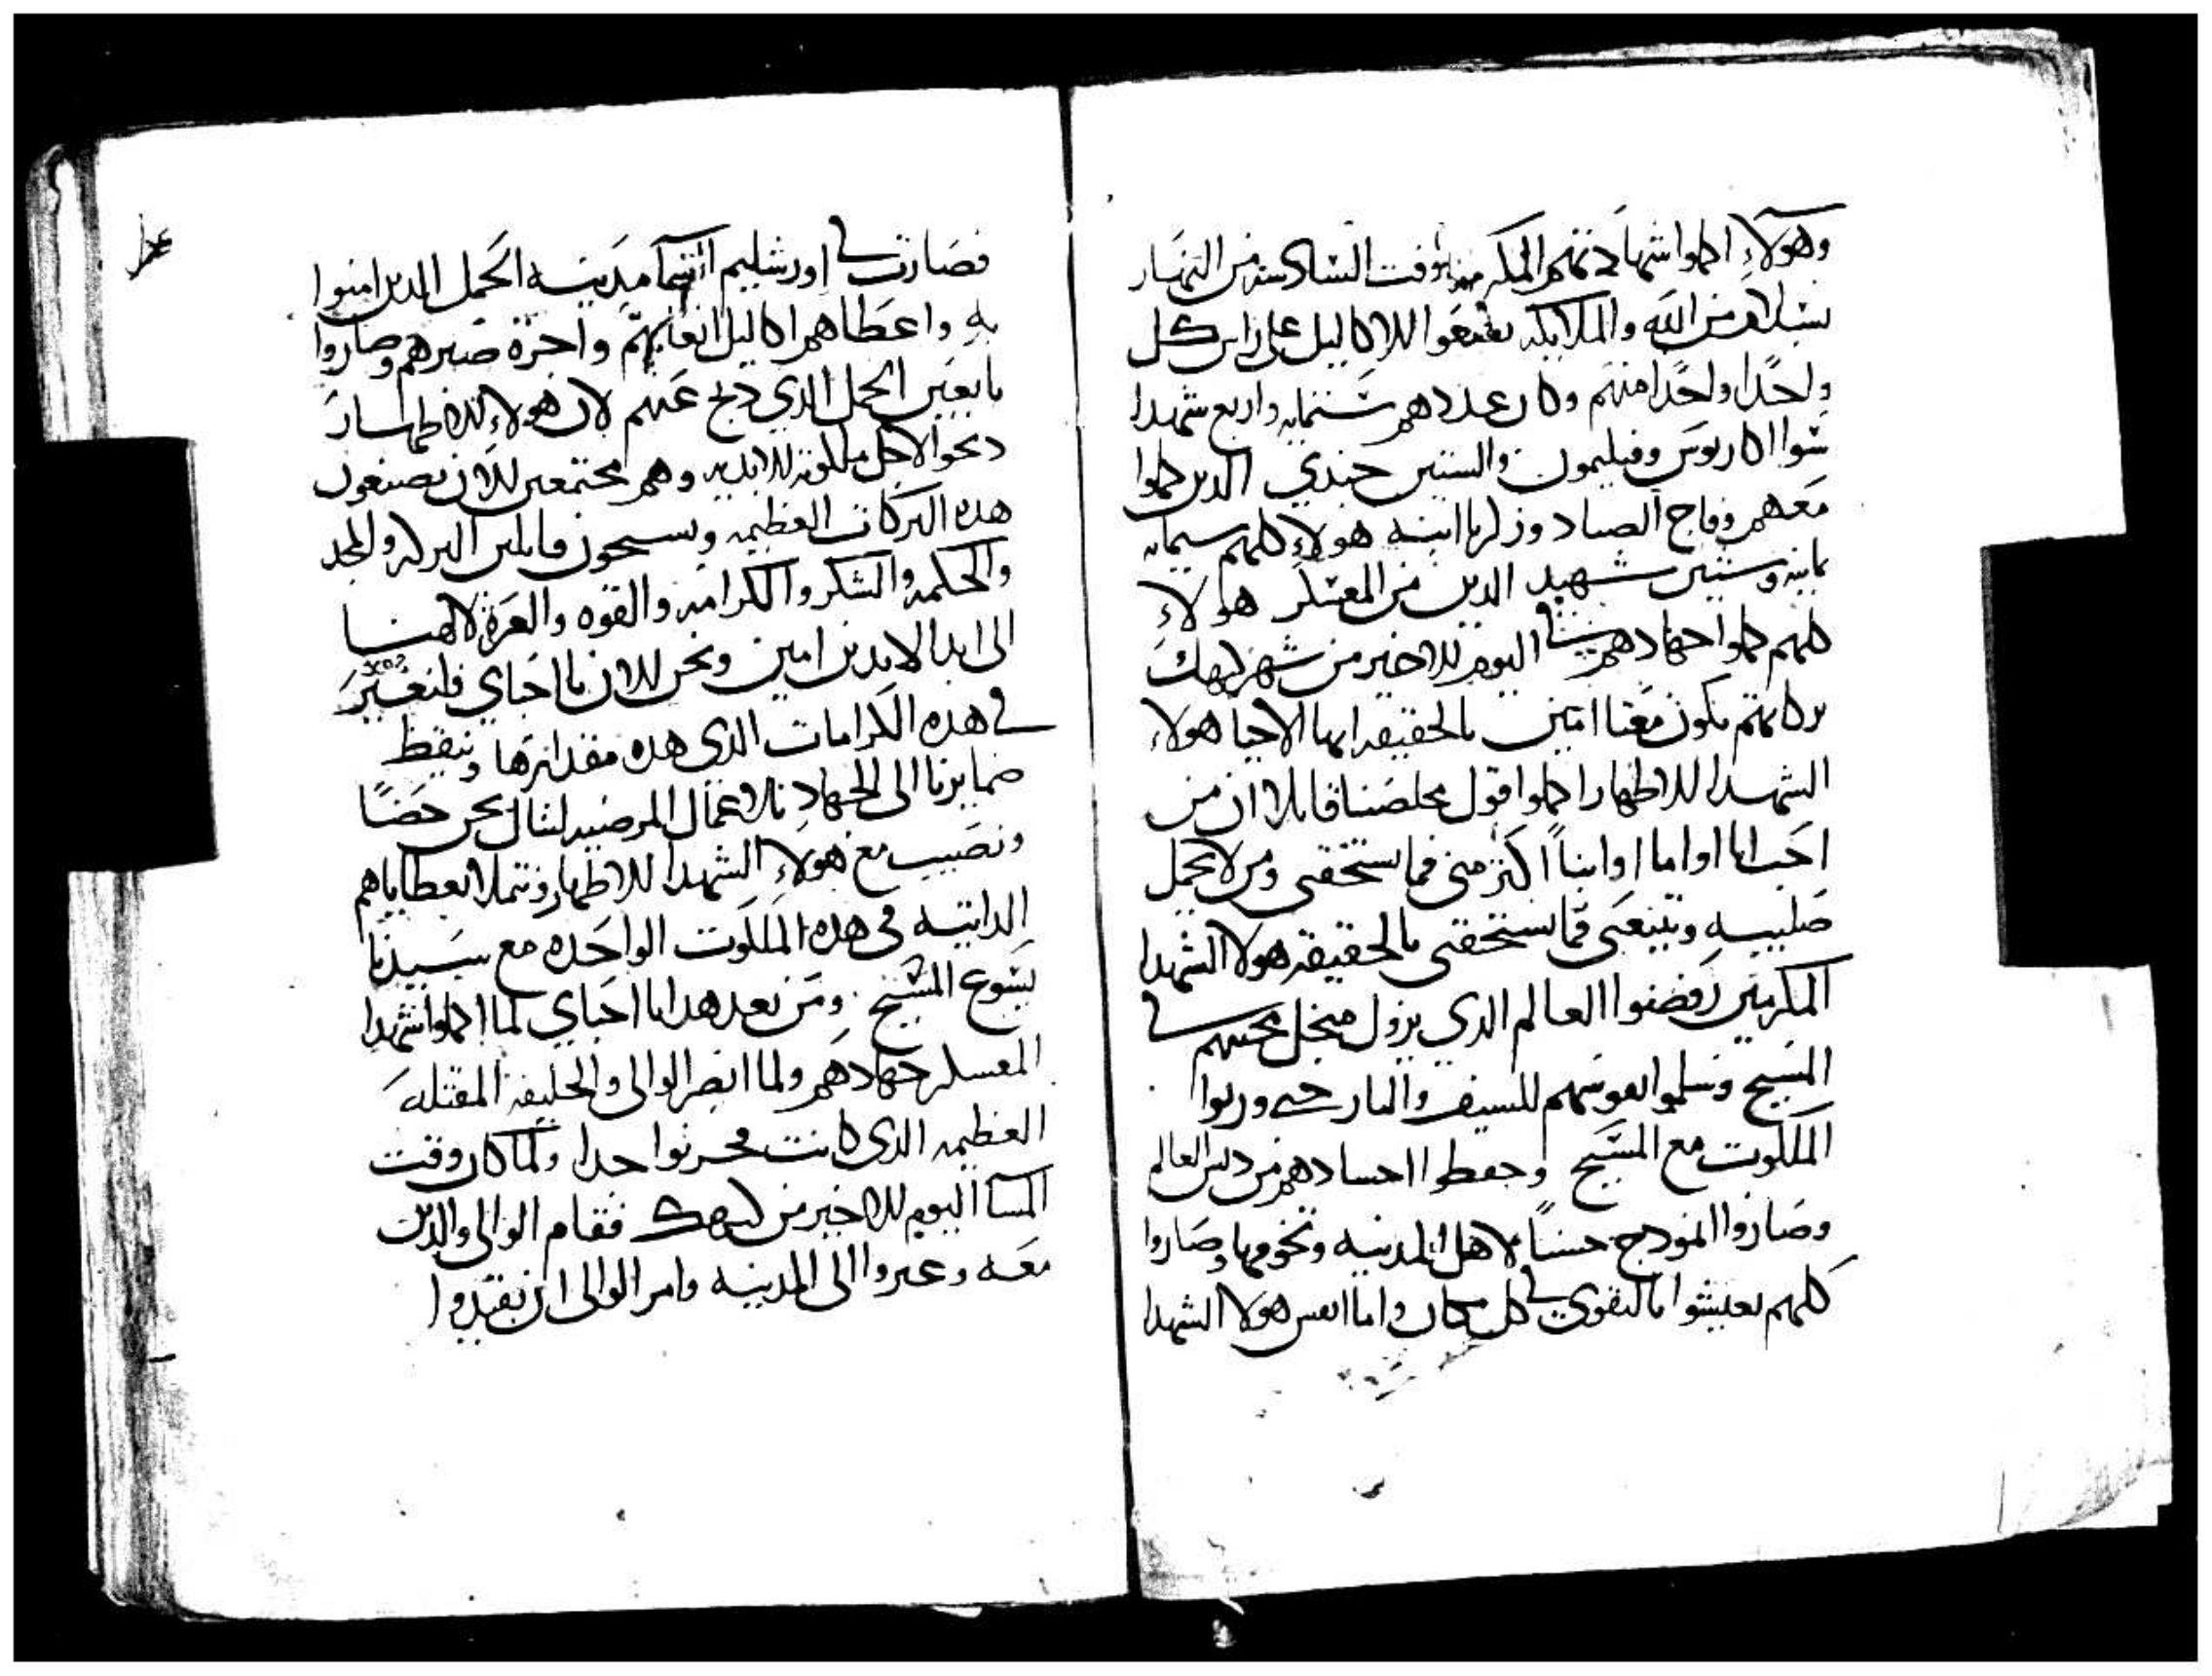 وهولاء اكملوا شهادتهم المكرمه بوقت السادسه من النهار
بسلام من الله والملايكه يضعوا الاكاليل على راس كل
واحدًا واحدًا منهم وكان عددهم ستمايه واربع شهدا
سوا اكاريوس وفيليمون والستين جندي الذين كملوا
معهم وفاج الصياد وزكريا ابنه هولاء كلهم سبمايه
مايه وستين شهيد الذين من المعسكر هولاء
كلهم كملوا جهادهم في اليوم الاخير من شهر كيهك
بركاتهم تكون معنا امين بالحقيقه ايها الاحبا هولاء
الشهدا الاطهار اكملوا قول مخلصنا قايلا ان من
احب ابا او اما او ابناً اكثر مني فما يستحقني ومن لا يحمل
صليبه ويتبعني فما يستحقني بالحقيقه هولا الشهدا
المكرمين رفضوا العالم الذي يزول منجل محبتهم في
المسيح وسلموا نفوسهم للسيف والنار حتى ورثوا
الملكوت مع المسيح وحفظوا اجسادهم من دنس العالم
وصاروا انمودج حسناً لاهل المدينه وتخومها وصاروا
كلهم يعيشوا بالتقوى في كل مكان واما انفس هولا الشهدا
فصارت في اورشليم السما مدينه الحمل الذين امنوا
به واعطاهم اكاليل اتعابهم واجرة صبرهم وصاروا
تابعين الحمل الذي ذبح عنهم لان هولاء الاطهار
دبحوا لاجل ملكوته الابديه وهم مجتمعين الان يصنعون
هذه البركات العظيمه ويسبحون قايلين البركه والمجد
والحكمه والشكر والكرامه والقوه والعزة لالهنا
الى ابد الابدين امين ونحن الان يا احباي فلنغير
في هذه الكرامات الذي هذه مقدارها ونيقظ
ضمايرنا الى الجهاد بالاعمال المرضيه لننال نحن حضًا
ونصيب مع هولاء الشهدا الاطهار ونتملا بعطاياهم
الداتيه في هذه الملكوت الواحده مع سيدنا
يسوع المسيح ومن بعد هدا يا احباي لما اكملوا شهدا
المعسكر جهادهم ولما ابصر الوالي والخليفه المقتله
العظيمه الذي كانت فحزنوا جدا ولما كان وقت
المسا اليوم الاخير من كيهك فقام الوالي والذين
معه وعبروا الى المدينه وامر الوالي ان يقيدوا